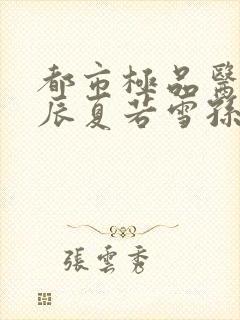 都市極品醫
辰夏若雪孫
張雲秀